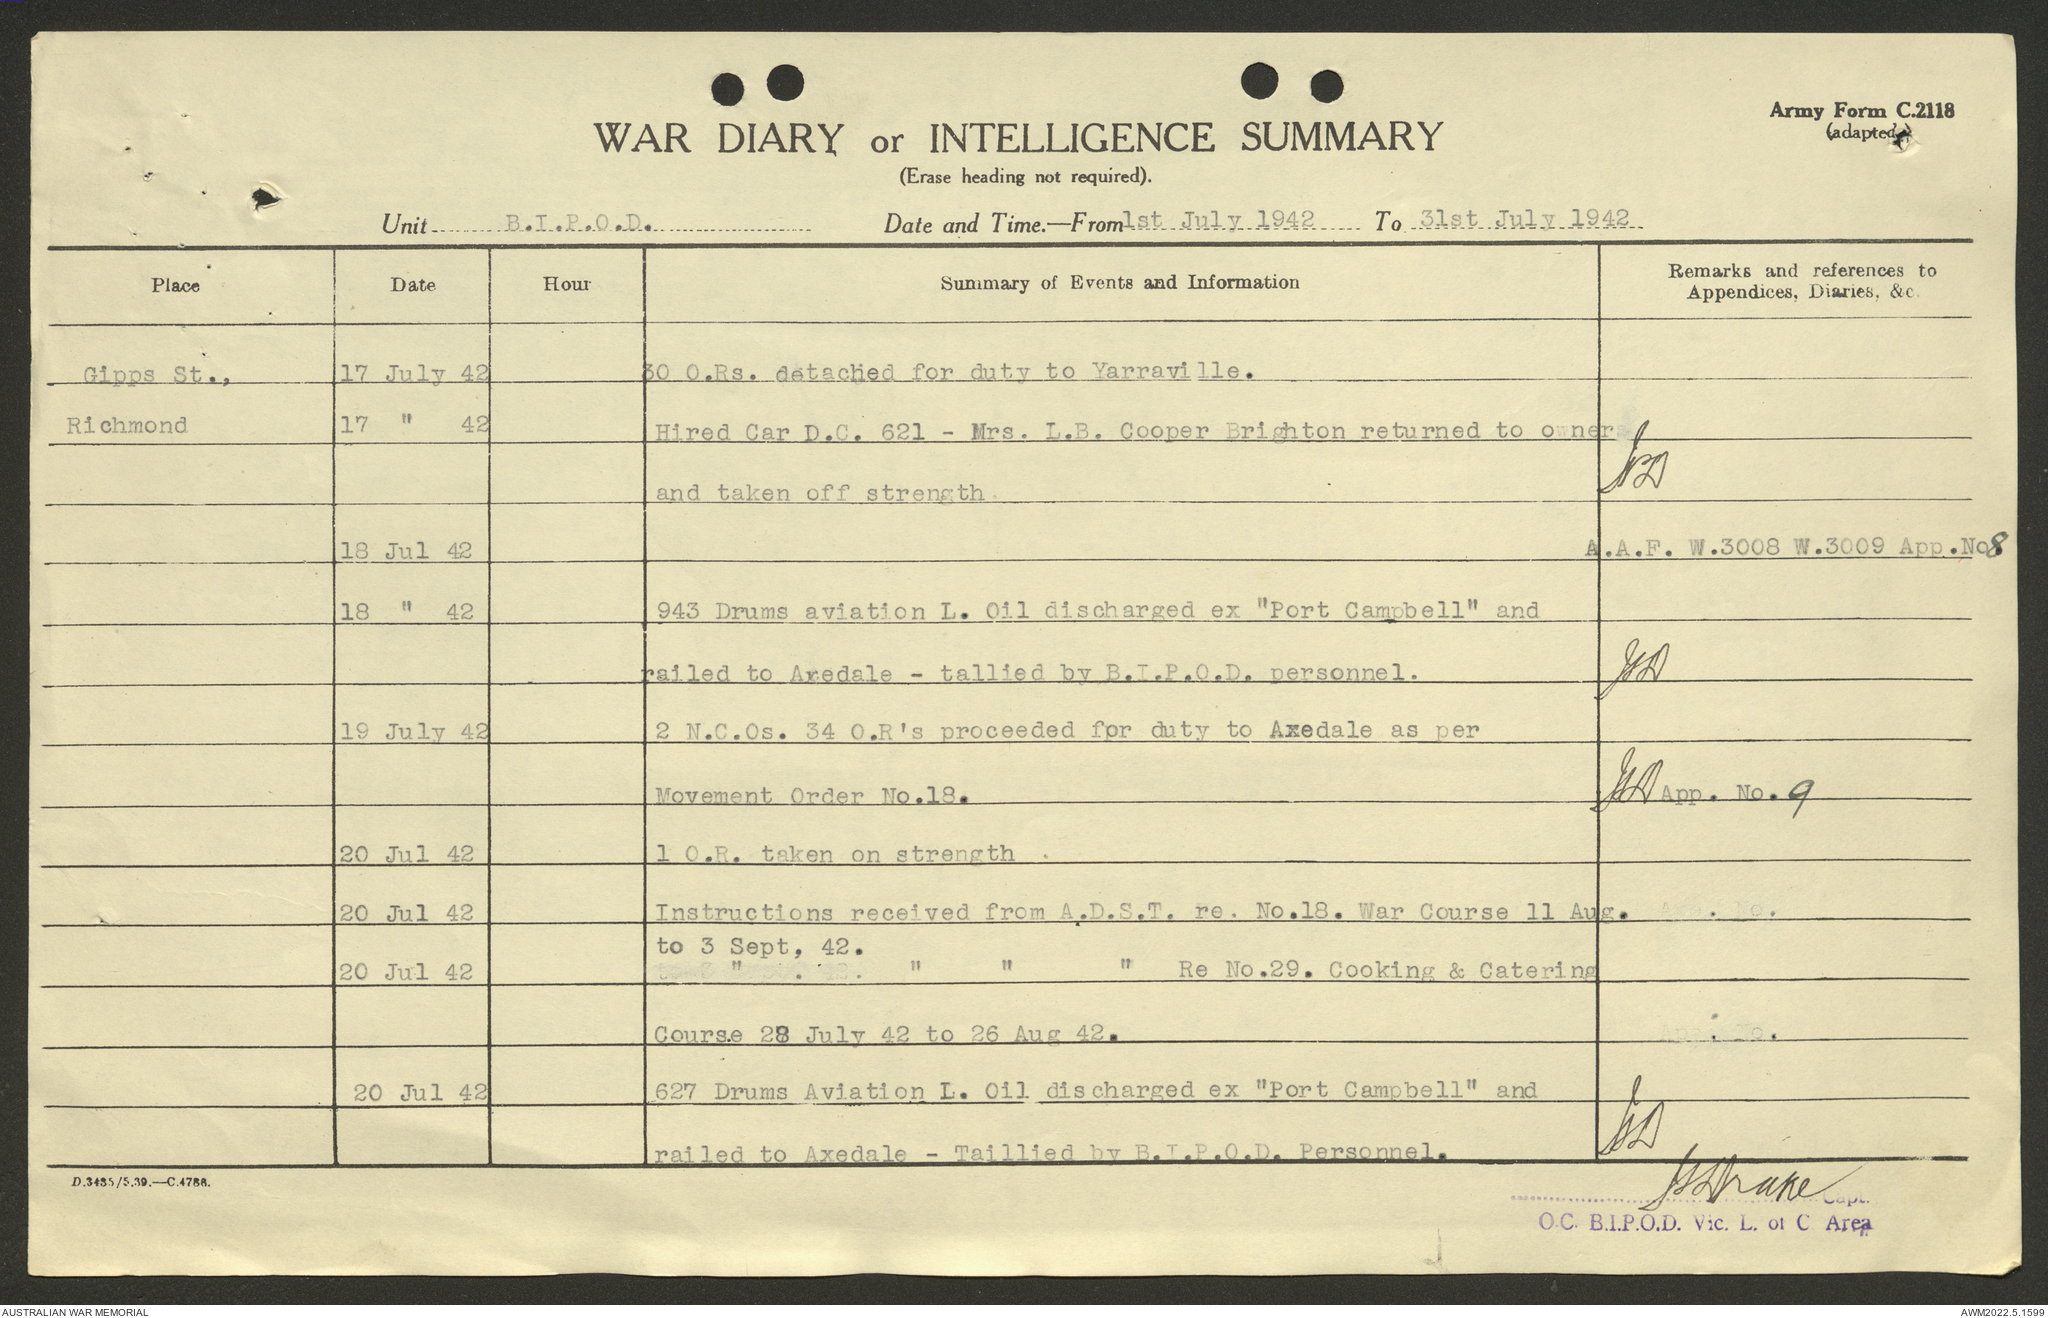 Army Form C.2118
(adapted)
WAR DIARY or INTELLIGENCE SUMMARY
(Erase heading not required).
Unit B.I.P.O.D. Date and Time.—From 1st July 1942 To 31st July 1942
Place Date Hour Summary of Events and Information Remarks and references to
Appendices, Diaries, &c.
Gipps St., 17 July 42 30 O.Rs. detached for duty to Yarraville.
Richmond 17 " 42 Hired Car D.C. 621 - Mrs. L.B. Cooper Brighton returned to owner
and taken off strength. JSD
18 Jul 42 A.A.F. W.3008 W.3009 App.No.8
18 " 42 943 Drums aviation L. Oil discharged ex "Port Campbell" and
railed to Axedale - tallied by B.I.P.O.D. personnel. JSD
19 July 42 2 N.C.Os. 34 O.R's proceeded for duty to Axedale as per
Movement Order No.18. JSD App. No. 9
20 Jul 42 1 O.R. taken on strength .
20 Jul 42 Instructions received from A.D.S.T. re. No.18. War Course 11 Aug. App. No.
to 3 Sept, 42.
20 Jul 42 " " " " Re No.29. Cooking & Catering
Course 28 July 42 to 26 Aug 42. App. No.
20 Jul 42 627 Drums Aviation L. Oil discharged ex "Port Campbell" and
railed to Axedale - Taillied by B.I.P.O.D. Personnel. JSD
D.3485/5.39.—C.4786.
JSDrake Capt.
O.C. B.I.P.O.D. Vic. L. of C. Area
AUSTRALIAN WAR MEMORIAL AWM2022.5.1599